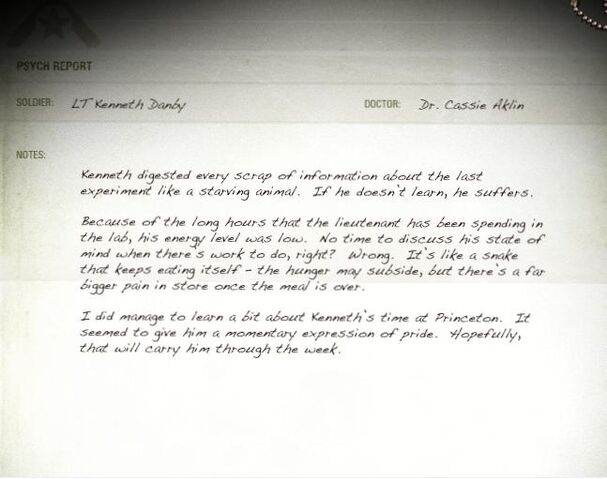 PSYCH REPORT
SOLDIER: LT Kenneth Danby DOCTOR: Dr. Cassie Aklin
NOTES:
Kenneth digested every scrap of information about the last
experiment like a starving animal. If he doesn't learn, he suffers.
Because of the long hours that the lieutenant has been spending in
the lab, his energy level was low. No time to discuss his state of
mind when there's work to do, right? Wrong. It's like a snake
that keeps eating itself - the hunger may subside, but there's a far
bigger pain in store once the meal is over.
I did manage to learn a bit about Kenneth's time at Princeton. It
seemed to give him a momentary expression of pride. Hopefully,
that will carry him through the week.